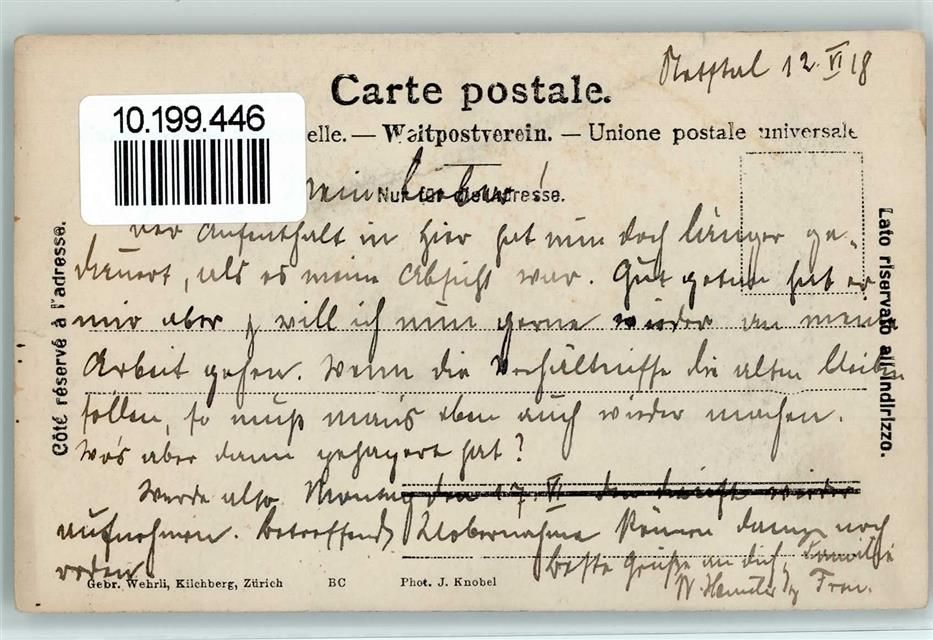 Netstal 12. VI 18
Carte postale.
10.199.446
elle. — Weltpostverein. — Unione postale universale
Mein Lieber!
Nur für die Adresse.
Der Aufenthalt in hier hat nun doch länger ge-
dauert, als es meine Absicht war. Gut getan hat er
mir aber & will ich nun gerne wieder an meine
Arbeit gehen. Wenn die Verhältnisse die alten bleiben
sollen, so muß man's eben auch wieder machen.
Wo's aber dann gehapert hat?
Werde also Montag den 17. VI den Dienst wieder
aufnehmen. Betreffend Übernahme können dann noch
reden.
Beste Grüße an dich, Familie
W. & Frau.
Côté réservé à l'adresse.
Lato riservato all'indirizzo.
Gebr. Wehrli, Kilchberg, Zürich BC Phot. J. Knobel